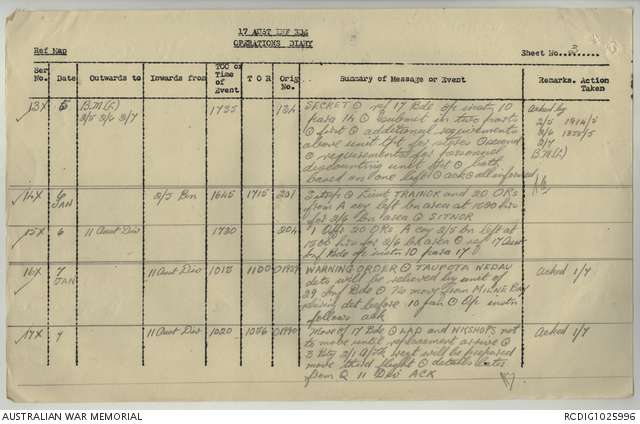 17 AUST INF BDE
OPERATIONS DIARY
Ref Map
Sheet No. 2
Ser No. Date Outwards to Inwards from TOO or Time of Event T O R Orig No. Summary of Message or Event Remarks. Action Taken
13X 5 B.M.(L) 2/5 2/6 2/7 1735 134 SECRET ⊙ ref 17 Bde o/o instn 10
para 14 ⊙ submit in two parts
⊙ first ⊙ additional requirements
above unit
⊙ requirements for personnel
discounting unit ⊙ both
based on one ⊙ ack ⊙ all informed
Acked by
2/5 1914/5
2/6 1855/5
2/7
B.M.(L)
14X 6 JAN 2/5 Bn 1645 1715 201 Sitrep ⊙ Lieut TRAINOR and 20 ORs
from A coy left bn area at 1600 hrs
for 2/6 bn area ⊙ SITNOR
15X 6 11 Aust Div 1730 204 1 Offr 20 ORs A coy 2/5 bn left at
1600 hrs for 2/6 bn area ⊙ ref 17 Aust
Inf Bde op instn 10 para 17
16X 7 JAN 11 Aust Div 1015 1100 WARNING ORDER ⊙ TAUPOTA NEDAU
dets will be relieved by unit of
29 Inf Bde ⊙ No move from MILNE BAY
relieving det before 10 Jan ⊙ Op instn
follows ack
Acked 1/7
17X 7 11 Aust Div 1020 1056 Move of 17 Bde ⊙ LAD and WKSHOPS not
to move until replacement arrive ⊙
will be proposed
move third flight ⊙ details later
from Q 11 Div ACK
Acked 1/7
AUSTRALIAN WAR MEMORIAL
RCDIG1025996